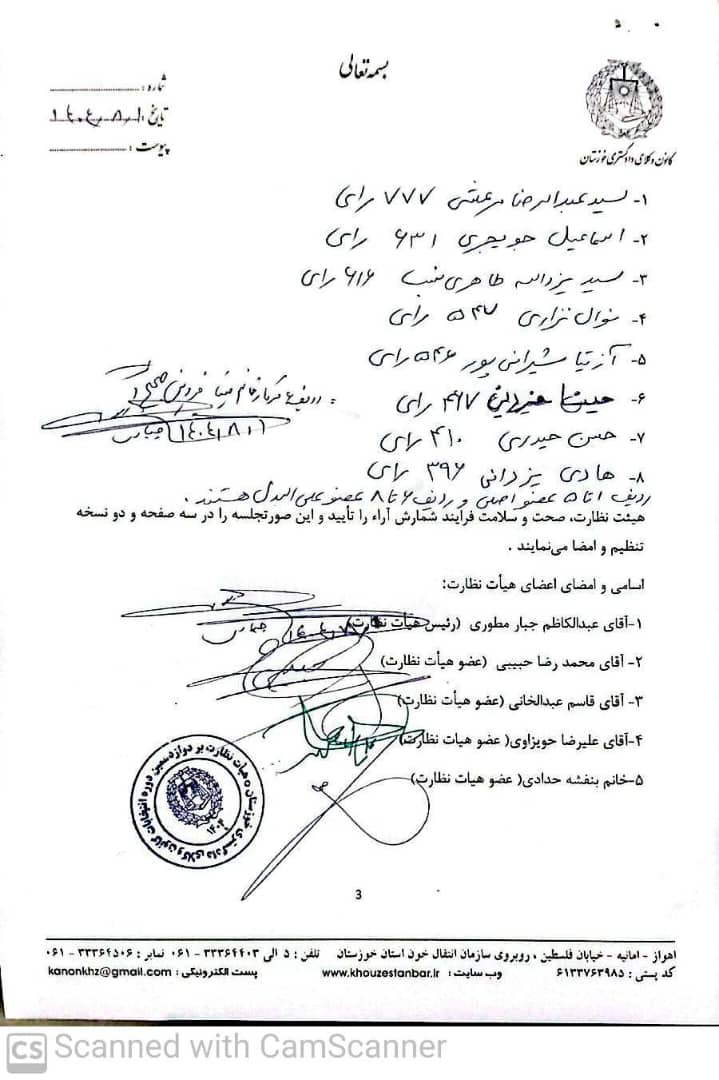 بسمه تعالی
شماره:
تاریخ: ۱۴۰۴،۸،۱
پیوست:
کانون وکلای دادگستری خوزستان
۱- سید عبدالرضا مرعشی ۷۷۷ رای
۲- اسماعیل جویجری ۶۳۱ رای
۳- سید یزداله طاهری نسب ۶۱۶ رای
۴- نوال نزاری ۵۴۷ رای
۵- آزیتا شیرانی پور ۵۴۶ رای
۶- ۴۶۷ رای
ردیف ۶
۱۴۰۴،۸،۱
۷- حسن حیدری ۴۱۰ رای
۸- هادی یزدانی ۳۹۶ رای
ردیف ۱ تا ۵ عضو اصلی و ردیف ۶ تا ۸ عضو علی البدل هستند.
هیئت نظارت، صحت و سلامت فرایند شمارش آراء را تأیید و این صورتجلسه را در سه صفحه و دو نسخه
تنظیم و امضا می‌نمایند .
اسامی و امضای اعضای هیأت نظارت:
۱-آقای عبدالکاظم جبار مطوری (رئیس هیأت نظارت)
۲- آقای محمد رضا حبیبی (عضو هیأت نظارت)
۳- آقای قاسم عبدالخانی (عضو هیأت نظارت)
۴-آقای علیرضا حویزاوی( عضو هیات نظارت)
۵-خانم بنفشه حدادی( عضو هیات نظارت)
هیات نظارت بر دوازدهمین دوره انتخابات کانون وکلای دادگستری خوزستان
۱۴۰۴
3
اهواز - امانیه - خیابان فلسطین ، روبروی سازمان انتقال خون استان خوزستان تلفن : ۵ الی ۳۳۳۶۴۴۰۳ - ۰۶۱ نمابر : ۳۳۳۶۴۵۰۶ - ۰۶۱
کد پستی : ۶۱۳۳۷۶۳۹۸۵ وب سایت : www.khouzestanbar.ir پست الکترونیکی : kanonkhz@gmail.com
CS Scanned with CamScanner